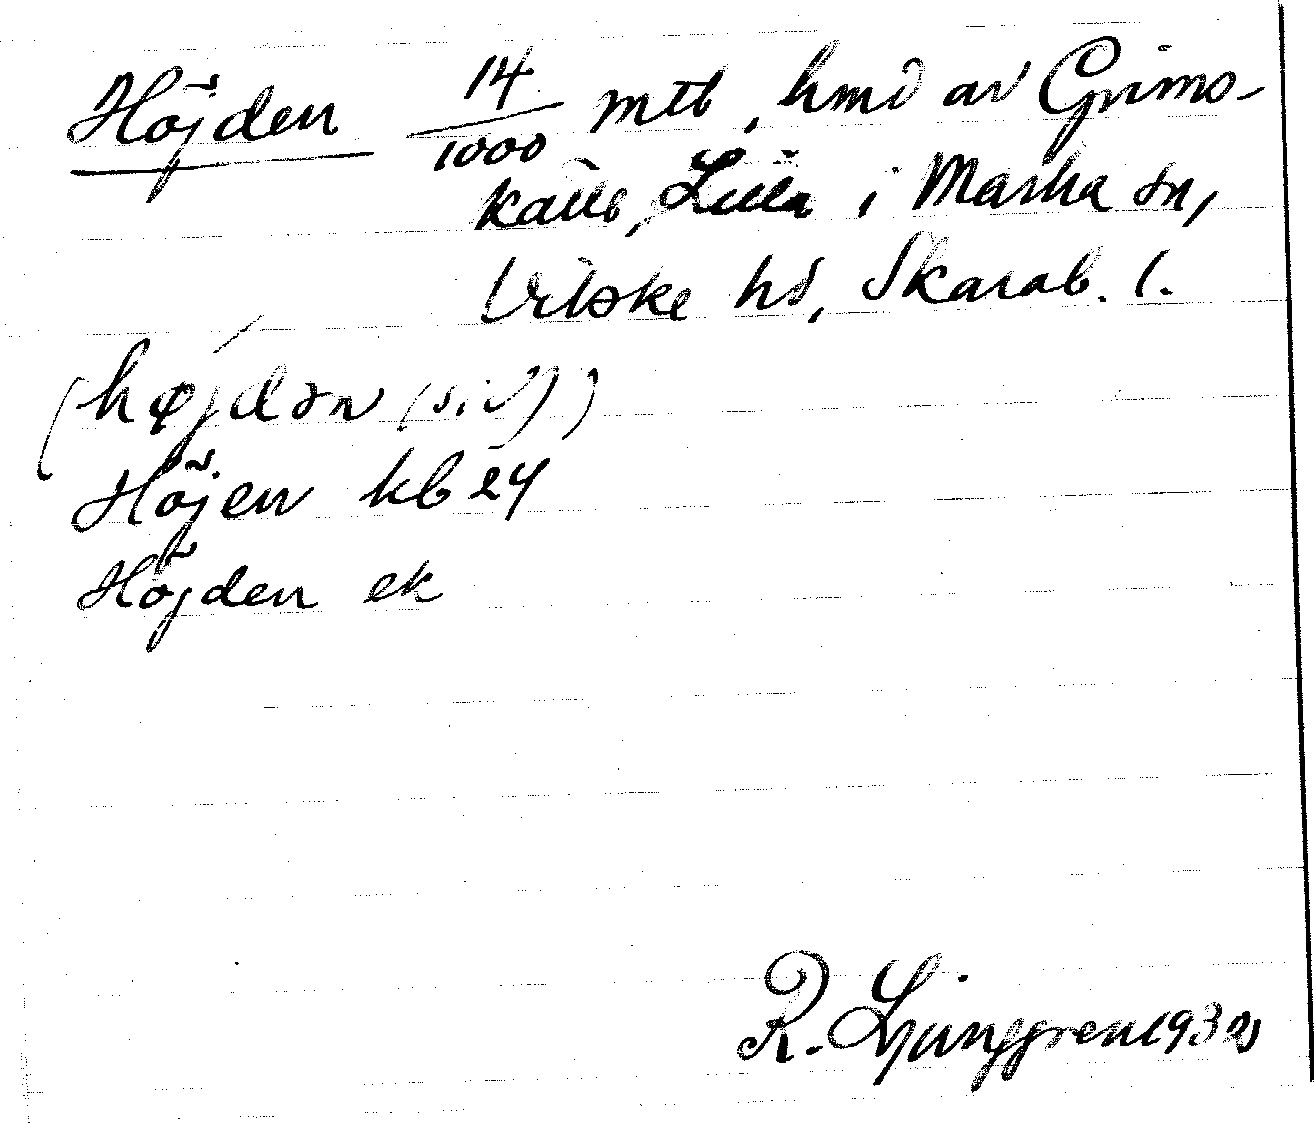 Höjden 14/1000 mtl, hmd av Grims-
källe, Lilla i Marka sn,
Vilske hd, Skarab. l.
(højdən (siv))
Höjen kb 24
Höjden ek
R. Ljunggren 1932